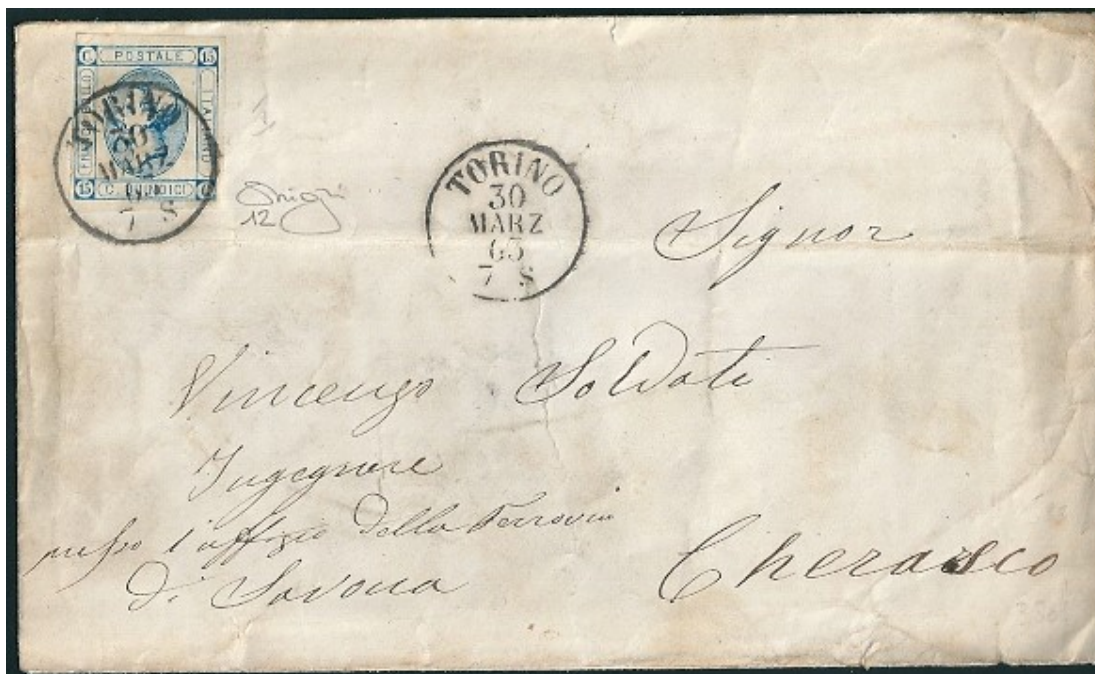 POSTALE
15
FRANCO BOLLO
ITALIANO
15 C. QUINDICI
TORINO
30
MARZ
7 S
12
TORINO
30
MARZ
63
7 S
Signor
Vincenzo Soldati
Ingegnere
presso l'offizio della Ferrovia
di Savona
Cherasco